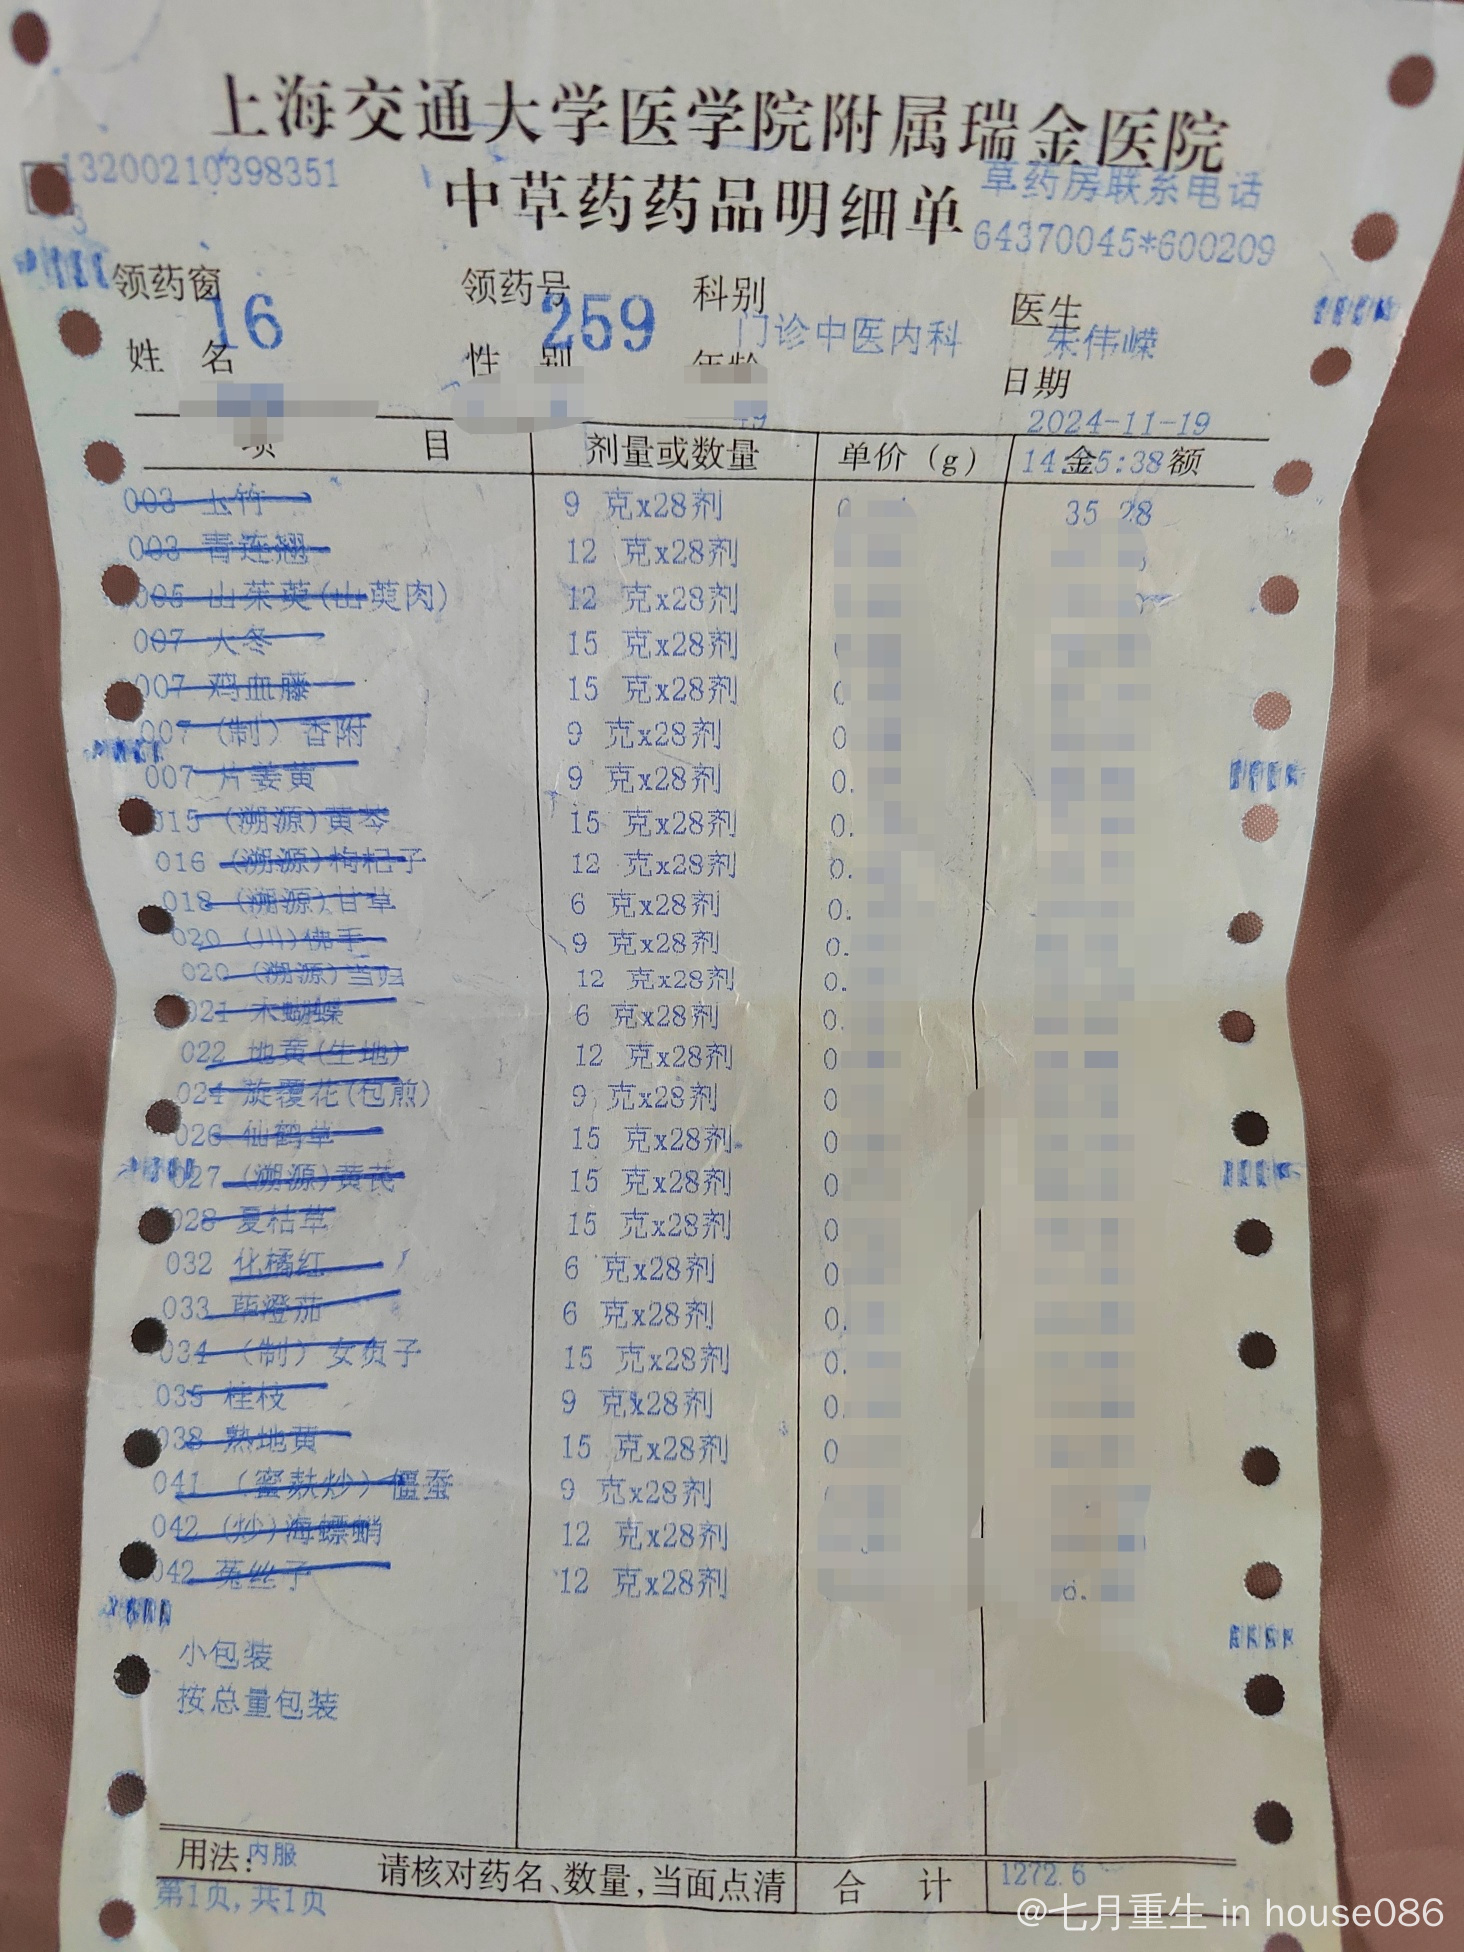 上海交通大学医学院附属瑞金医院
13200210398351
中草药药品明细单
草药房联系电话
3
64370045*600209
领药窗 16 领药号 259 科别 门诊中医内科 医生 朱伟嵘
姓 名 性 别 年龄 日期 2024-11-19
项 目 剂量或数量 单价(g) 金额 14 5:38
003 玉竹 9 克x28剂 0 35 28
003 青连翘 12 克x28剂
005 山茱萸(山萸肉) 12 克x28剂
007 天冬 15 克x28剂
007 鸡血藤 15 克x28剂
007 (制) 香附 9 克x28剂 0
007 片姜黄 9 克x28剂 0.
015 (溯源)黄芩 15 克x28剂 0.
016 (溯源)枸杞子 12 克x28剂 0.
018 (溯源)甘草 6 克x28剂 0.
020 (川)佛手 9 克x28剂 0.
020 (溯源)当归 12 克x28剂 0.
021 木蝴蝶 6 克x28剂 0.
022 地黄(生地) 12 克x28剂 0
024 旋覆花(包煎) 9 克x28剂 0
026 仙鹤草 15 克x28剂 0
027 (溯源)黄芪 15 克x28剂 0
028 夏枯草 15 克x28剂 0
032 化橘红 6 克x28剂 0
033 荜澄茄 6 克x28剂 0.
034 (制) 女贞子 15 克x28剂 0.
035 桂枝 9 克x28剂 0.
038 熟地黄 15 克x28剂 0
041 (蜜麸炒) 僵蚕 9 克x28剂
042 (炒)海螵蛸 12 克x28剂
042 菟丝子 12 克x28剂
小包装
按总量包装
用法:内服 请核对药名、数量,当面点清 合 计 1272.6
第1页,共1页
@七月重生 in house086